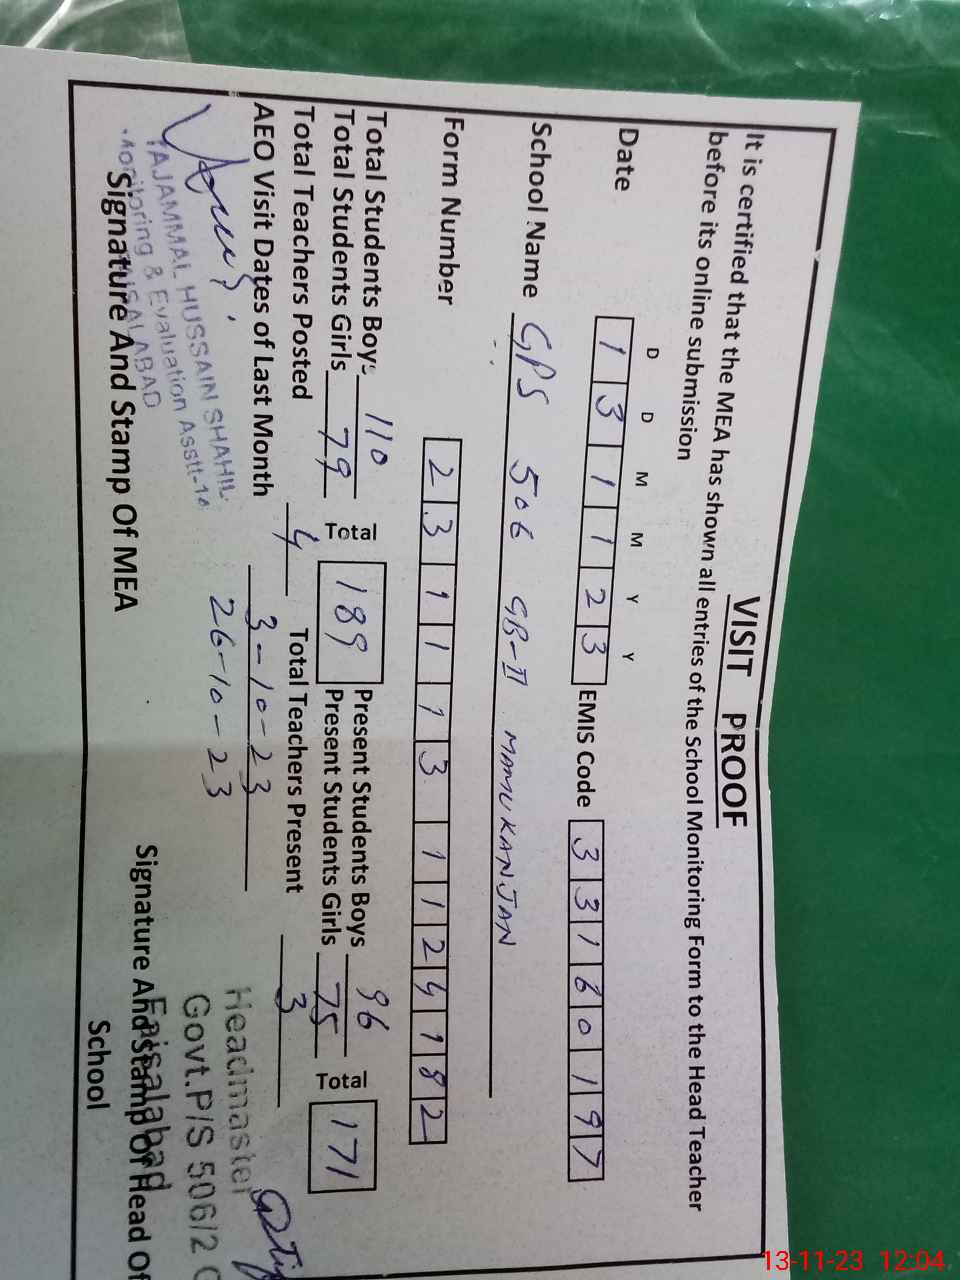 VISIT PROOF
It is certified that the MEA has shown all entries of the School Monitoring Form to the Head Teacher
before its online submission
D D M M Y Y
Date 1 3 1 1 2 3 EMIS Code 3 3 1 6 0 1 9 7
School Name GPS 506 GB-II MAMUKANJAN
Form Number 2 3 1 1 1 3 1 1 2 4 1 8 2
Total Students Boys 110 Total 189 Present Students Boys 96 Total 171
Total Students Girls 79 Present Students Girls 75
Total Teachers Posted 4 Total Teachers Present 3
AEO Visit Dates of Last Month 3-10-23
26-10-23
TAJAMMAL HUSSAIN SHAHIL
Monitoring & Evaluation Asstt-10
FAISALABAD
Signature And Stamp Of MEA
Headmaster
Govt.P/S 506/2 G
Faisalabad
Signature And Stamp Of Head Of
School
13-11-23 12:04